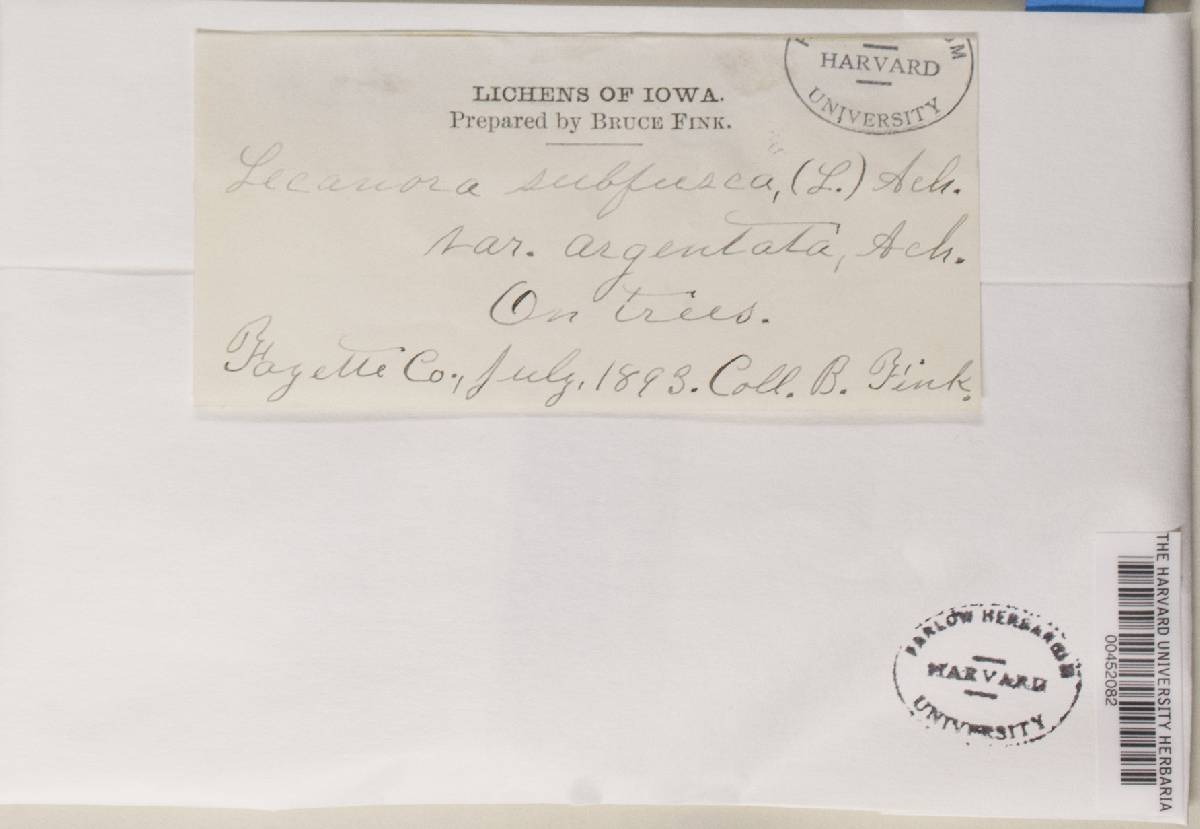 HARVARD
UNIVERSITY
LICHENS OF IOWA.
Prepared by BRUCE FINK.
Lecanora subfusca, (L.) Ach.
var. argentata, Ach.
On trees.
Fayette Co., July, 1893. Coll. B. Fink.
FARLOW HERBARIUM
HARVARD
UNIVERSITY
THE HARVARD UNIVERSITY HERBARIA
00452082